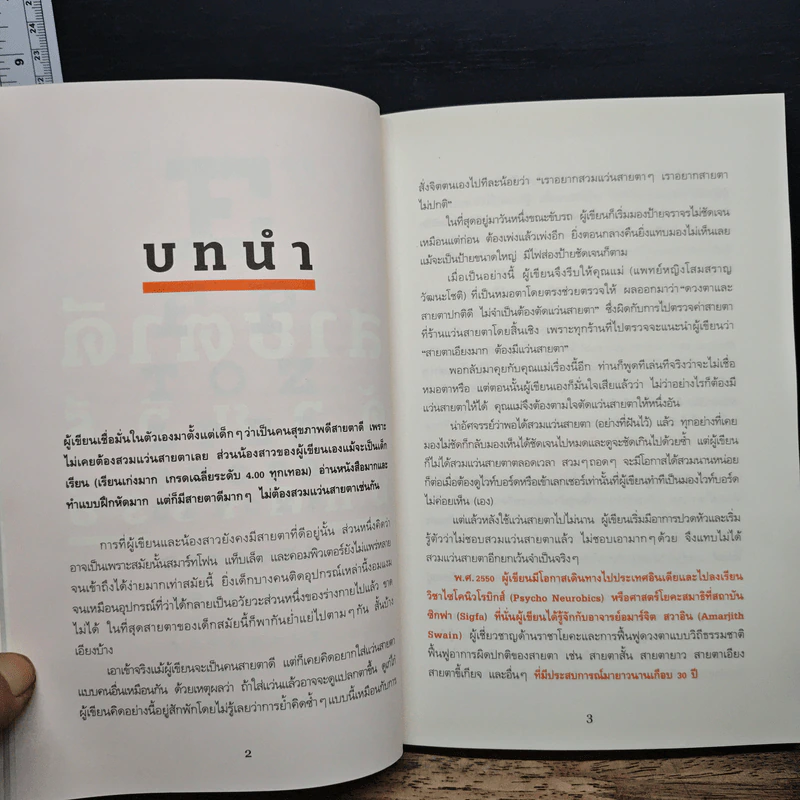 บทนำ
ผู้เขียนเชื่อมั่นในตัวเองมาตั้งแต่เด็กๆ ว่าเป็นคนสุขภาพดีสายตาดี เพราะ
ไม่เคยต้องสวมแว่นสายตาเลย ส่วนน้องสาวของผู้เขียนเองแม้จะเป็นเด็ก
เรียน (เรียนเก่งมาก เกรดเฉลี่ยระดับ 4.00 ทุกเทอม) อ่านหนังสือมากและ
ทำแบบฝึกหัดมาก แต่ก็มีสายตาดีมากๆ ไม่ต้องสวมแว่นสายตาเช่นกัน
การที่ผู้เขียนและน้องสาวยังคงมีสายตาที่ดีอยู่นั้น ส่วนหนึ่งคิดว่า
อาจเป็นเพราะสมัยนั้นสมาร์ทโฟน แท็บเล็ต และคอมพิวเตอร์ยังไม่แพร่หลาย
จนเข้าถึงได้ง่ายมากเท่าสมัยนี้ ยิ่งเด็กบางคนติดอุปกรณ์เหล่านี้งอมแงม
จนเหมือนอุปกรณ์ที่ว่าได้กลายเป็นอวัยวะส่วนหนึ่งของร่างกายไปแล้ว ขาด
ไม่ได้ ในที่สุดสายตาของเด็กสมัยนี้ก็พากันย่ำแย่ไปตามๆ กัน สั้นบ้าง
เอียงบ้าง
เอาเข้าจริงแม้ผู้เขียนจะเป็นคนสายตาดี แต่ก็เคยคิดอยากใส่แว่นสายตา
แบบคนอื่นเหมือนกัน ด้วยเหตุผลว่า ถ้าใส่แว่นแล้วอาจจะดูแปลกตาขึ้น ดูเก๋ไก๋
ผู้เขียนคิดอย่างนี้อยู่สักพักโดยไม่รู้เลยว่าการย้ำคิดซ้ำๆ แบบนี้เหมือนกับการ
2
สั่งจิตตนเองไปทีละน้อยว่า “เราอยากสวมแว่นสายตาๆ เราอยากสายตา
ไม่ปกติ”
ในที่สุดอยู่มาวันหนึ่งขณะขับรถ ผู้เขียนก็เริ่มมองป้ายจราจรไม่ชัดเจน
เหมือนแต่ก่อน ต้องเพ่งแล้วเพ่งอีก ยิ่งตอนกลางคืนยิ่งแทบมองไม่เห็นเลย
แม้จะเป็นป้ายขนาดใหญ่ มีไฟส่องป้ายชัดเจนก็ตาม
เมื่อเป็นอย่างนี้ ผู้เขียนจึงรีบให้คุณแม่ (แพทย์หญิงโสมสราญ
วัฒนะโชติ) ที่เป็นหมอตาโดยตรงช่วยตรวจให้ ผลออกมาว่า “ดวงตาและ
สายตาปกติดี ไม่จำเป็นต้องตัดแว่นสายตา” ซึ่งผิดกับการไปตรวจค่าสายตา
ที่ร้านแว่นสายตาโดยสิ้นเชิง เพราะทุกร้านที่ไปตรวจจะแนะนำผู้เขียนว่า
“สายตาเอียงมาก ต้องมีแว่นสายตา”
พอกลับมาคุยกับคุณแม่เรื่องนี้อีก ท่านก็พูดทีเล่นทีจริงว่าจะไม่เชื่อ
หมอตาหรือ แต่ตอนนั้นผู้เขียนเองก็มั่นใจเสียแล้วว่า ไม่ว่าอย่างไรก็ต้องมี
แว่นสายตาให้ได้ คุณแม่จึงต้องตามใจตัดแว่นสายตาให้หนึ่งอัน
น่าอัศจรรย์ว่าพอได้สวมแว่นสายตา (อย่างที่ฝันไว้) แล้ว ทุกอย่างที่เคย
มองไม่ชัดก็กลับมองได้ชัดเจนไปหมดและดูจะชัดเกินไปด้วยซ้ำ แต่ผู้เขียน
ก็ไม่ได้สวมแว่นสายตาตลอดเวลา สวมๆ ถอดๆ จะมีโอกาสได้สวมนานหน่อย
ก็ต่อเมื่อต้องดูไวท์บอร์ดหรือเข้าเลกเชอร์เท่านั้นที่ผู้เขียนทำทีเป็นมองไวท์บอร์ด
ไม่ค่อยเห็น (เอง)
แต่แล้วหลังใช้แว่นสายตาไปไม่นาน ผู้เขียนเริ่มมีอาการปวดหัวและเริ่ม
รู้ตัวว่าไม่ชอบสวมแว่นสายตาแล้ว ไม่ชอบเอามากๆ ด้วย จึงแทบไม่ได้
สวมแว่นสายตาอีกยกเว้นจำเป็นจริงๆ
พ.ศ. 2550 ผู้เขียนมีโอกาสเดินทางไปประเทศอินเดียและไปลงเรียน
วิชาไซโคนิวโรบิกส์ (Psycho Neurobics) หรือศาสตร์โยคะสมาธิที่สถาบัน
ซิกฟา (Sigfa) ที่นั่นผู้เขียนได้รู้จักกับอาจารย์อมาร์จิต สวาอิน (Amarjith
Swain) ผู้เชี่ยวชาญด้านราชาโยคะและการฟื้นฟูดวงตาแบบวิถีธรรมชาติ
ฟื้นฟูอาการผิดปกติของสายตา เช่น สายตาสั้น สายตายาว สายตาเอียง
สายตาขี้เกียจ และอื่นๆ ที่มีประสบการณ์มายาวนานเกือบ 30 ปี
3